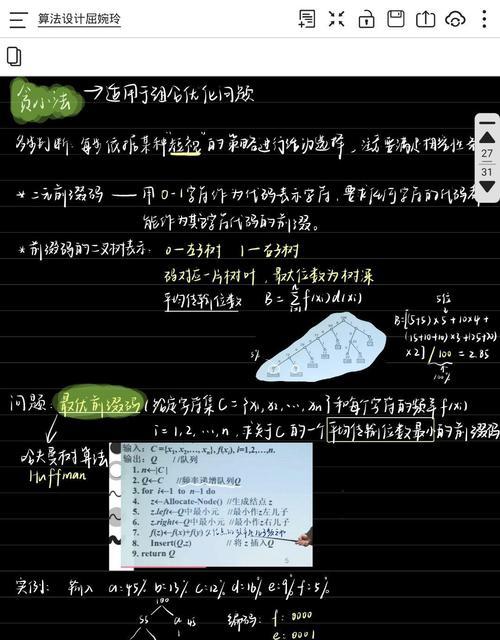 算法设计屈婉玲
27
31
贪心法 → 适用于组合优化问题
多步判断:每步依据某种"短视"的策略进行活动选择,注意要满足相容性
* 二元前缀码 —— 用0-1字符作为代码表示字符,要求任何字符的代码
能作为其它字符代码的前缀。
* 前缀码的二叉树表示: 0-左子树 1-右子树
码对应一片树叶,最大位数为树深
平均传输位数 B = Σ f(xi)d(xi)
n
i=1
5位
B=[(5+5)×5+10×4+
(15+10+10)×3+(25+20)
×2] / 100 = 2.85
100%
5%
问题:最优前缀码(给定字符集C={x1,x2,...,xn}和每个字符的频率f(xi)
i=1,2,...,n,求关于C的一个平均传输位数最小的前缀码
哈夫曼树算法
Huffman
输入:C={x1,x2,...,xn}, f(xi), i=1,2,...,n.
输出:Q //队列
1. n←|C|
2. Q←C //频率递增队列Q
3. for i←1 to n-1 do
4. z←Allocate-Node() //生成结点 z
5. z.left←Q中最小元 //最小作z左儿子
6. z.right←Q中最小元 //最小作z右儿子
7. f(z)←f(x)+f(y)
8. Insert(Q,z) // 将 z 插入Q
9. return Q
5
实例: 输入 a:45% b:13% c:12% d:16% e:9% f:5%
100
55 a 45 编码: f:0000
1 e:0001